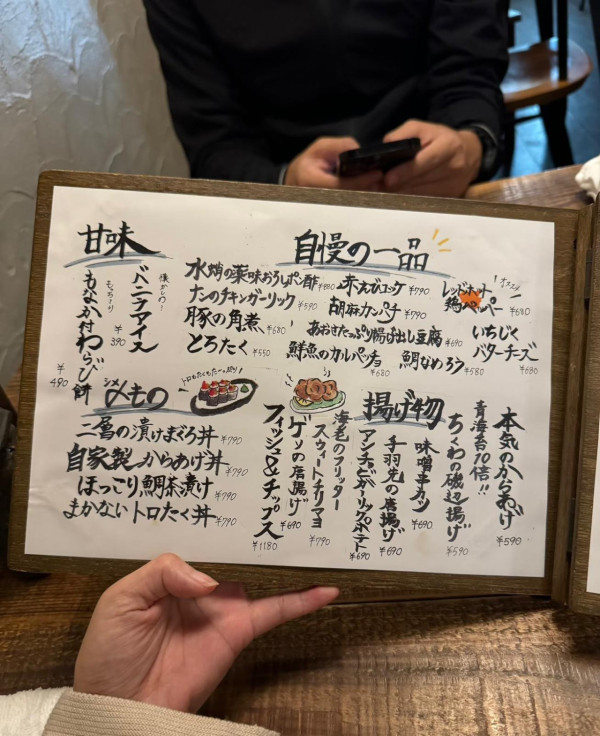 自慢の一品
水蛸の薬味おろしポン酢 ¥580
ナンのチキンガーリック ¥590
豚の角煮 ¥680
とろたく ¥550
赤えびユッケ ¥790
胡麻カンパチ ¥790
あおさたっぷり揚げ出し豆腐 ¥690
鮮魚のカルパッチョ ¥680
鯛なめろう ¥580
オススメ
レッドホット
鶏ペッパー ¥680
いちじく
バターチーズ ¥680
甘味
懐かしの!
バニラアイス
¥390
もっちーり
もなか付わらび餅
¥490
シメ
〆もの
二層の漬けまぐろ丼 ¥790
自家製からあげ丼 ¥790
ほっこり鯛茶漬け ¥790
まかないトロたく丼 ¥790
揚げ物
本気のからあげ
¥590
青海苔10倍!!
ちくわの磯辺揚げ
¥590
味噌串カツ
¥690
手羽先の唐揚げ
¥690
アンチョビガーリックポテト
¥690
スウィートチリマヨ
海老のフリッター
¥790
ゲソの唐揚げ
¥690
フィッシュ&チップス
¥1180